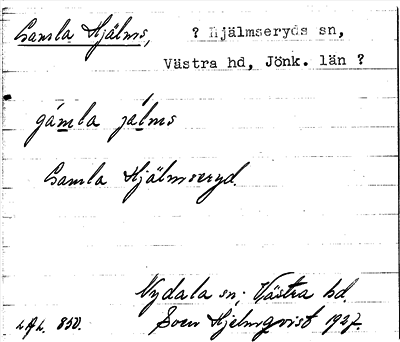 Gamla Hjälms, ? Hjälmseryds sn,
Västra hd, Jönk. län ?
gámla jálms
Gamla Hjälmseryd.
Nydala sn; Västra hd.
L.A.L. 850. Sven Hjelmqvist 1927.